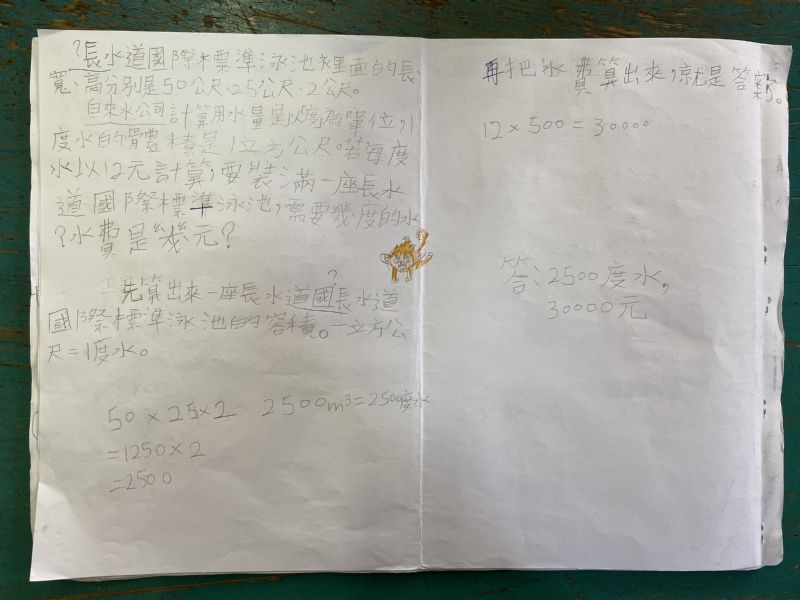 ?長水道國際標準泳池裡面的長、
寬、高分別是50公尺、25公尺、2公尺。
自來水公司計算用水量是以度為單位,1
度水的體積是1立方公尺。若每度
水以12元計算,要裝滿一座長水
道國際標準泳池,需要幾度的水
?水費是幾元?
?
先算出來一座長水道國長水道
國際標準泳池的容積。一立方公
尺=1度水。
50×25×2 2500m³=2500度水
=1250×2
=2500
再把水費算出來,就是答案。
12×500=30000
答:2500度水,
30000元